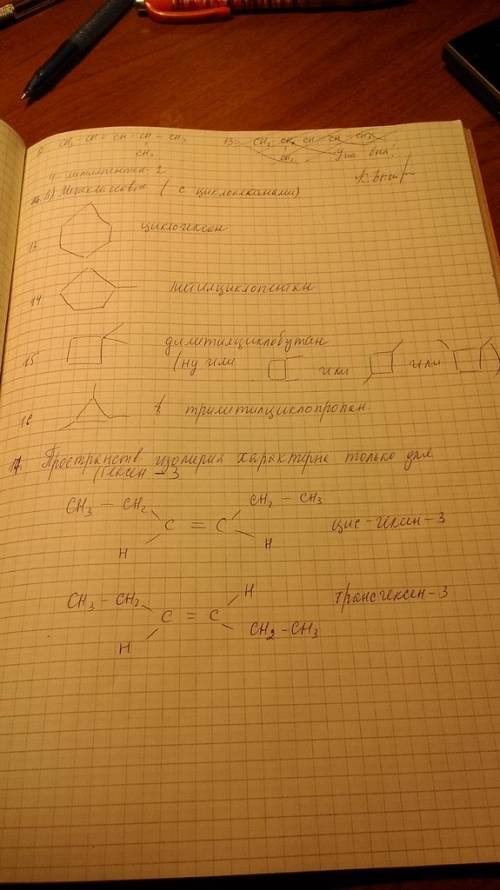 CH3 - CH - CH - CH - CH3
CH3
4-метилпентен-2
б) Межклассовые (с циклоалканами)
13 циклогексан
14 метилциклопентан
15 диметилциклобутан
(ну или или или )
16 триметилциклопропан
17. Пространств. изомерия характерна только для
(гексен-3
CH3 - CH2 CH2 - CH3
C = C цис-гексен-3
H H
CH3 - CH2 H трансгексен-3
C = C
H CH2 - CH3